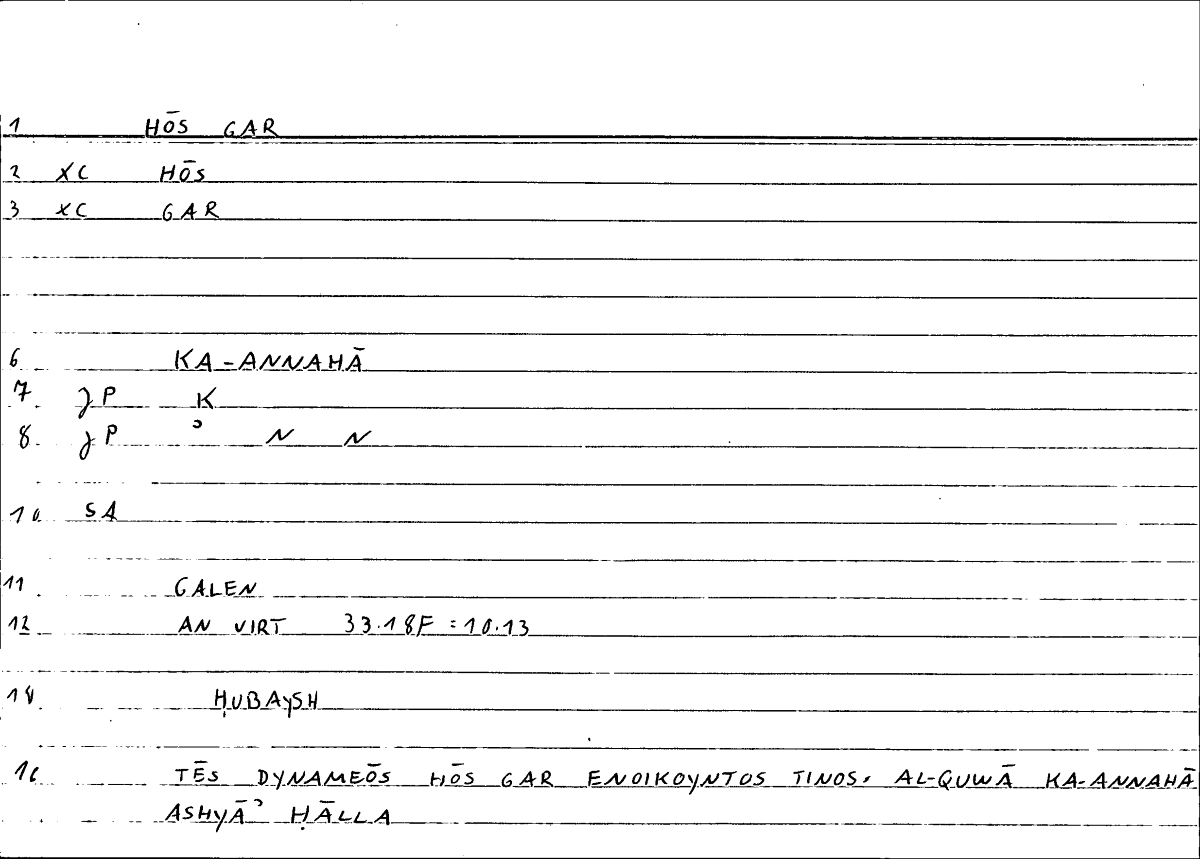 1 HŌS GAR
2 XC HŌS
3 XC GAR
6 KA-ANNAHĀ
7 JP K
8 JP ʾ N N
10 SA
11 GALEN
12 AN VIRT 33.18F = 10.13
14 ḤUBAYSH
16 TĒS DYNAMEŌS HŌS GAR ENOIKOYNTOS TINOS. AL-QUWĀ KA-ANNAHĀ
ASHYĀʾ ḤĀLLA